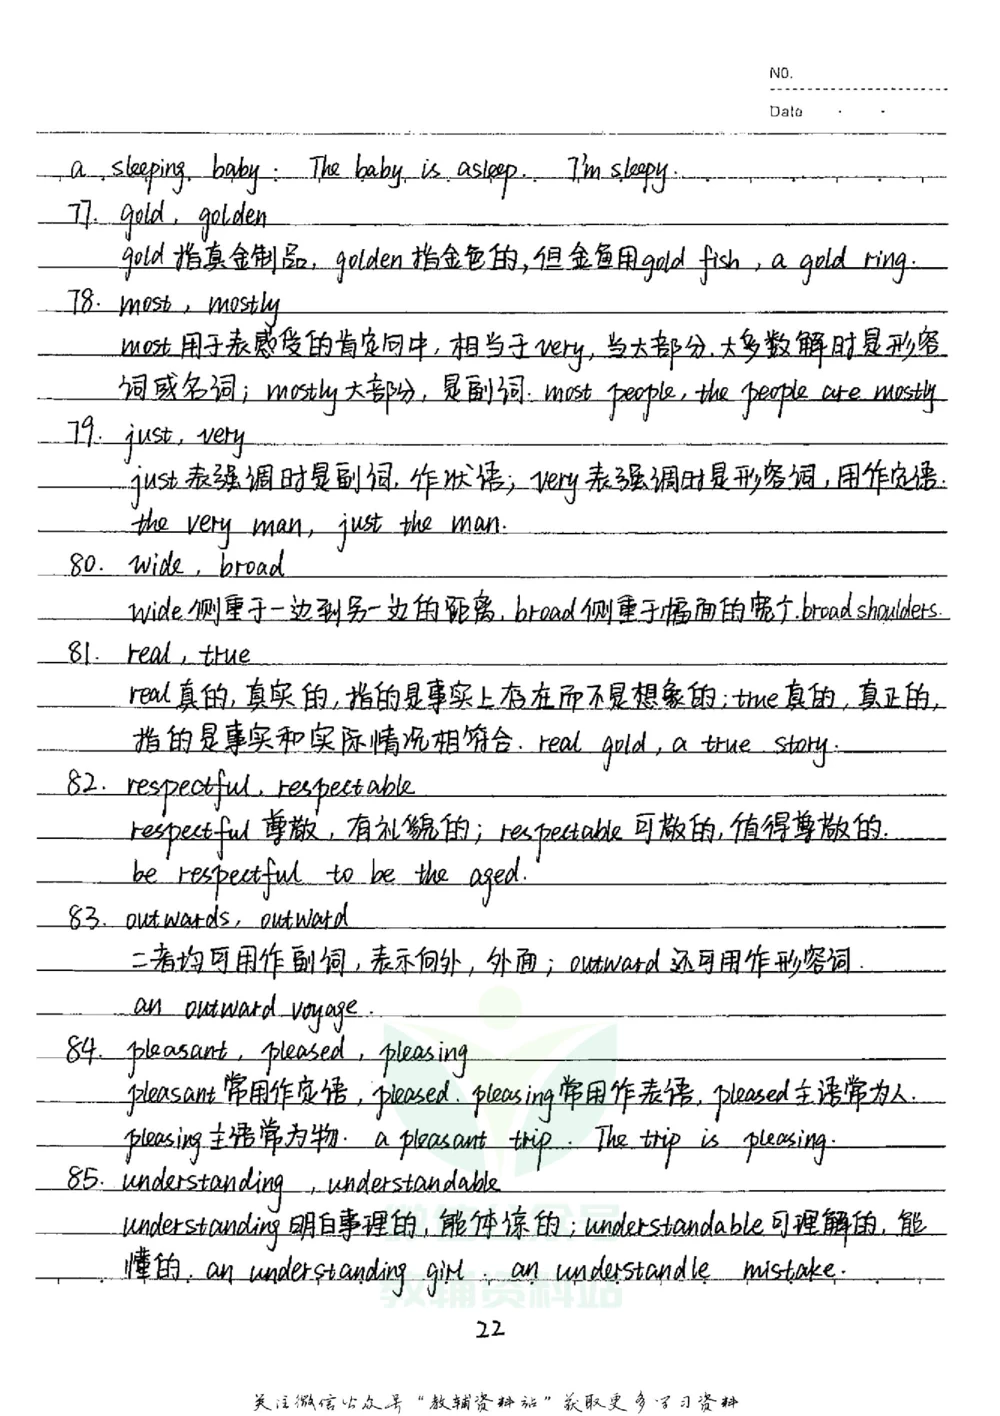 NO.
Date
a sleeping baby. The baby is asleep. I'm sleepy.
77. gold, golden
gold 指真金制品, golden 指金色的,但金鱼用gold fish, a gold ring.
78. most, mostly
most 用于表感受的肯定句中,相当于very,当大部分.大多数解时是形容
词或名词; mostly大部分,是副词. most people, the people are mostly
79. just, very
just 表强调时是副词,作状语; very表强调时是形容词,用作定语.
the very man, just the man.
80. wide, broad
wide侧重于一边到另一边的距离, broad侧重于幅面的宽广.broad shoulders.
81. real, true
real真的,真实的,指的是事实上存在而不是想象的; true真的,真正的,
指的是事实和实际情况相符合. real gold, a true story.
82. respectful, respectable
respectful 尊敬,有礼貌的; respectable 可敬的,值得尊敬的.
be respectful to be the aged.
83. outwards, outward
二者均可用作副词,表示向外,外面; outward 还可用作形容词.
an outward voyage.
84. pleasant, pleased, pleasing
pleasant 常用作定语, pleased. pleasing常用作表语, pleased主语常为人.
pleasing主语常为物. a pleasant trip. The trip is pleasing.
85. understanding, understandable
understanding明白事理的,能体谅的; understandable可理解的,能
懂的. an understanding girl. an understandle mistake.
教辅资料站
22
关注微信公众号“教辅资料站”获取更多学习资料